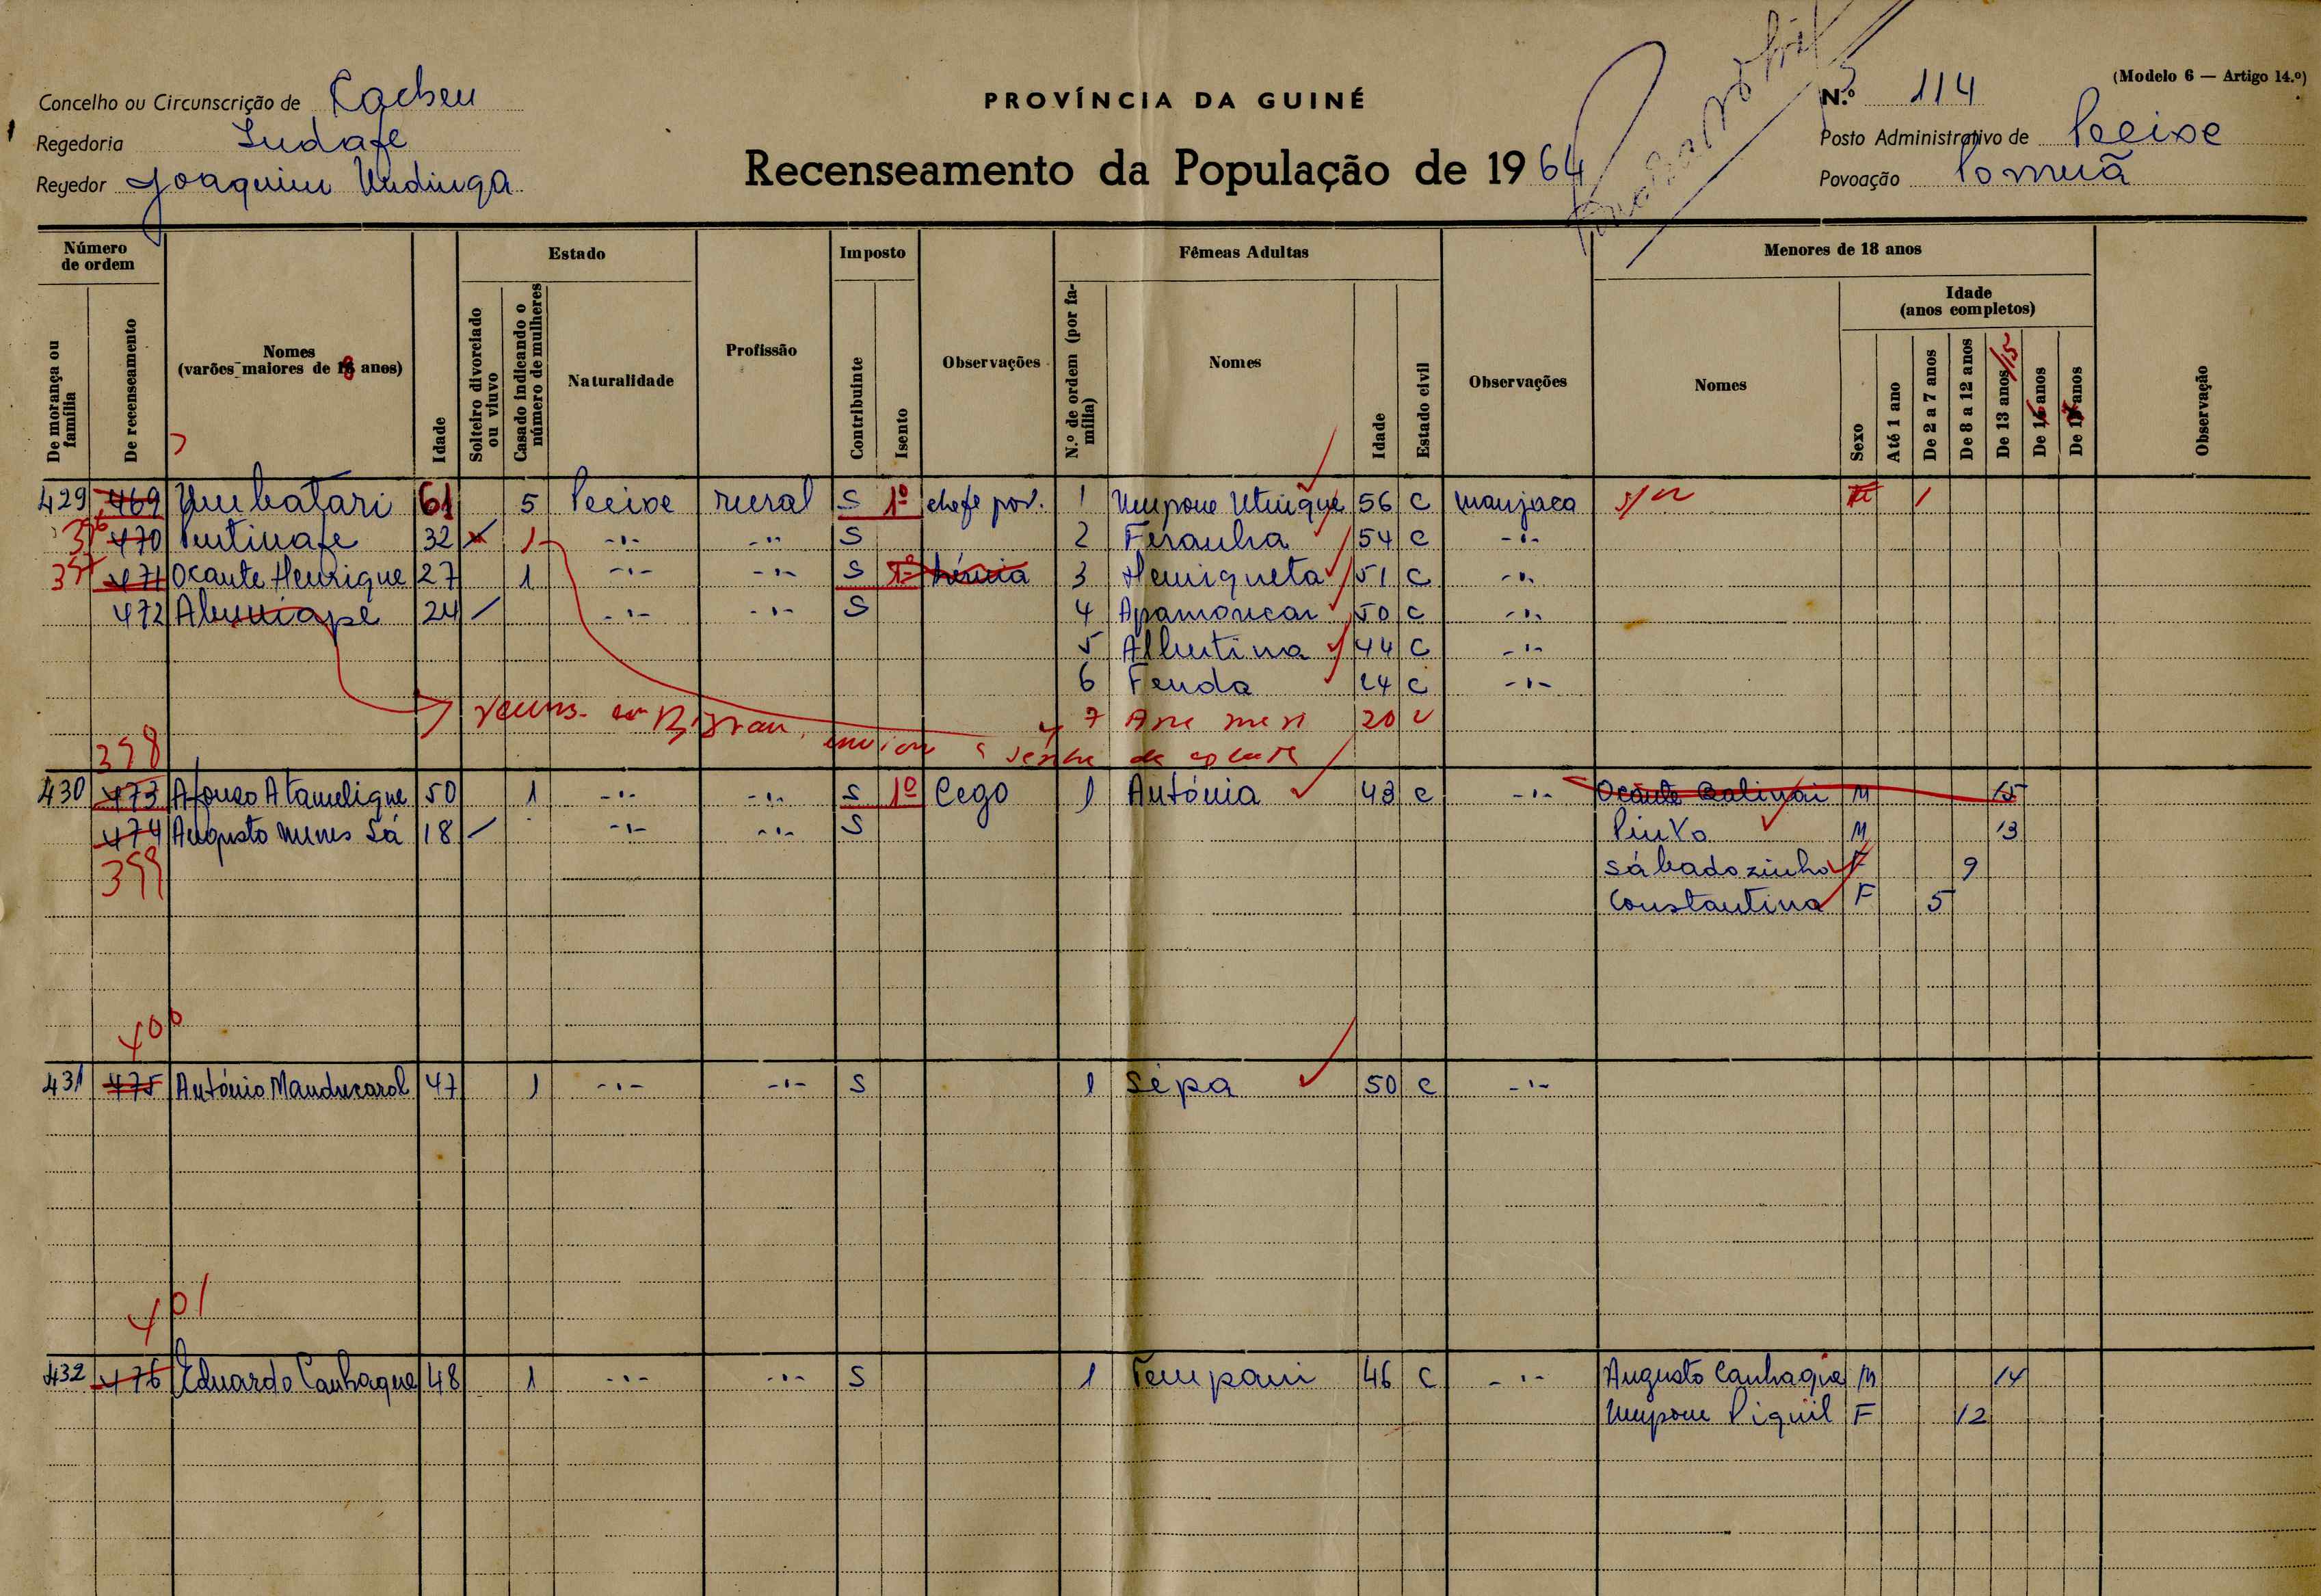 (Modelo 6 — Artigo 14.º)
Concelho ou Circunscrição de Cacheu
PROVÍNCIA DA GUINÉ
N.º 114
Regedoria
Posto Administrativo de Pecixe
Regedor Joaquim
Recenseamento da População de 1964
Povoação
Número de ordem
Estado
Imposto
Fêmeas Adultas
Menores de 18 anos
De morança ou família
De recenseamento
Nomes (varões maiores de 18 anos)
Idade
Solteiro divorciado ou viuvo
Casado indicando o número de mulheres
Naturalidade
Profissão
Contribuinte
Isento
Observações
N.º de ordem (por família)
Nomes
Idade
Estado civil
Observações
Nomes
Sexo
Idade (anos completos)
Até 1 ano
De 2 a 7 anos
De 8 a 12 anos
De 13 anos/15
De anos
De anos
Observação
429 469 61 5 Pecixe rural S 1º chefe pov. 1 56 C manjaca s/n 1
470 32 1 -"- -"- S 2 54 C -"-
397 471 Ocante Henrique 27 1 -"- -"- S hérnia 3 Henriqueta 51 C -"-
472 24 -"- -"- S 4 50 C -"-
5 Albertina 44 C -"-
6 Fenda 24 C -"-
7 20
398
430 473 Afonso Atamelique 50 1 -"- -"- S 1º Cego 1 Antónia 43 C -"- Ocante M 15
474 Augusto Nunes Sá 18 -"- -"- S Pinto M 13
399 Sábadozinho F 9
Constantina F 5
400
431 475 António Manducarol 47 1 -"- -"- S 1 Sépa 50 C -"-
401
432 476 Eduardo Canhaque 48 1 -"- -"- S 1 46 C -"- Augusto Canhaque M 14
F 12